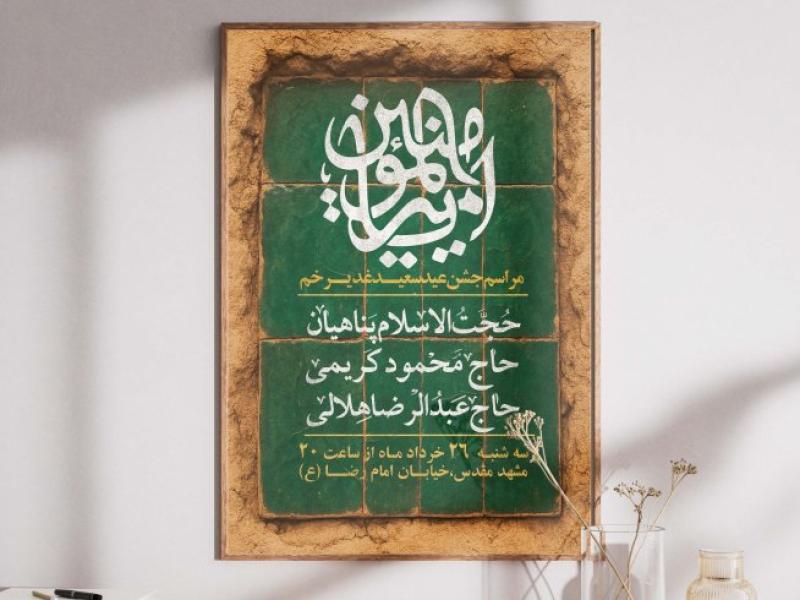 امیرالمؤمنین
مراسم جشن عید سعید غدیر خم
حُجَّتُ الاسلام پَناهیان
حاج مَحْمود کَریمی
حاج عَبدُالرضا هِلالی
سه شنبه ۲۶ خرداد ماه از ساعت ۲۰
مشهد مقدس، خیابان امام رضا (ع)